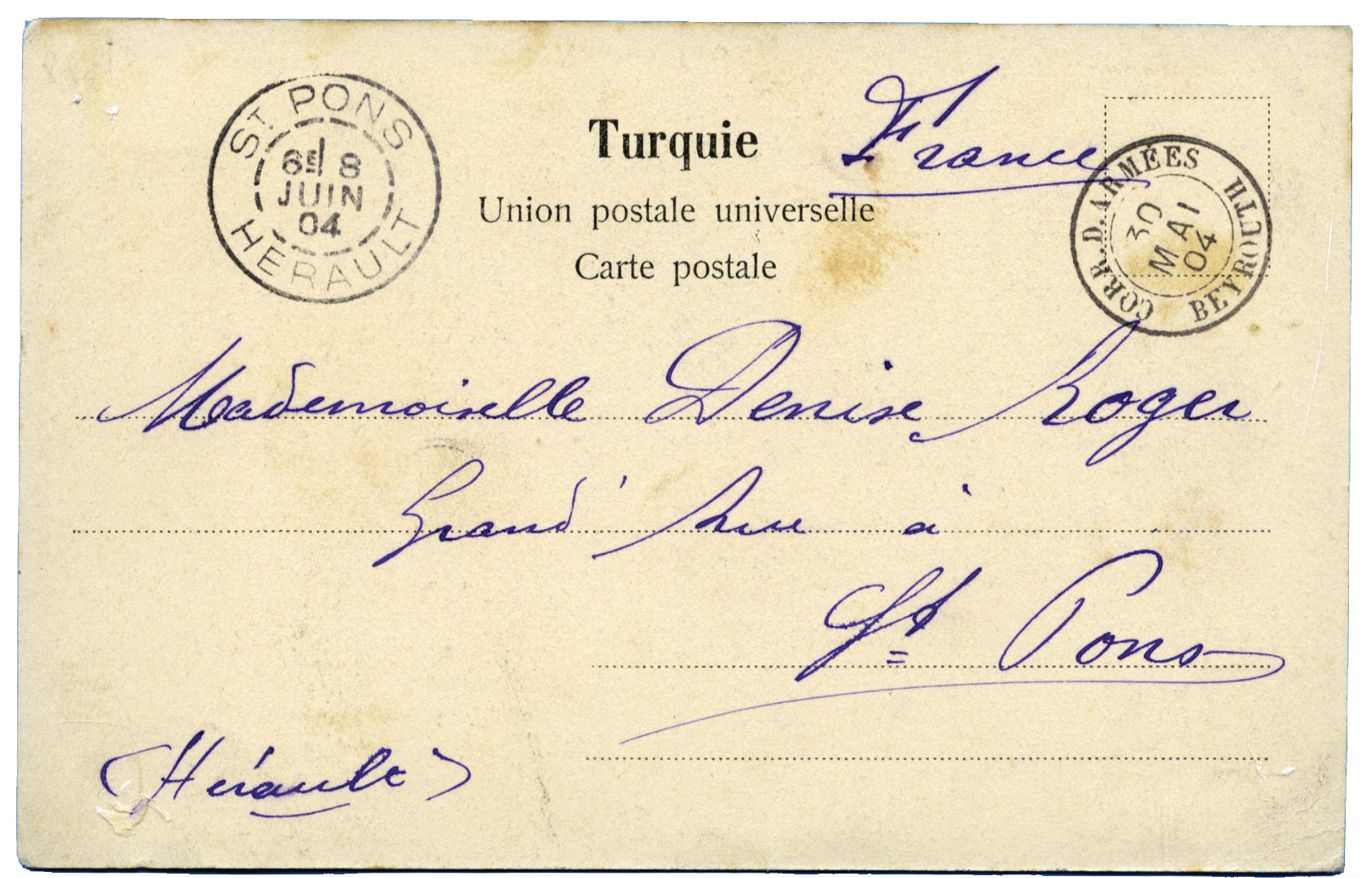 St PONS
6E 8
JUIN
04
HÉRAULT
Turquie
Union postale universelle
Carte postale
France
CORR. D. ARMÉES
BEYROUTH
30
MAI
04
Mademoiselle Denise Roger
Grand' Rue à
St Pons
(Hérault)